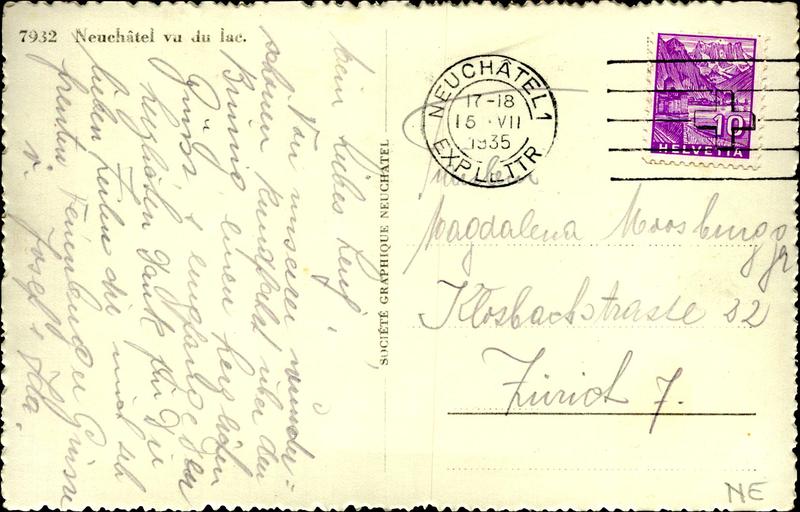 7932 Neuchâtel vu du lac.
Mein liebes
Von unserer wunder-
schönen Rundfahrt über den
Brünig einen herzlichen
Gruss & empfange den
herzlichen Dank für Die
lieben Zeilen die mich sehr
freuten. Grüsse
v. Josef & Ida.
SOCIÉTÉ GRAPHIQUE NEUCHÂTEL
NEUCHÂTEL 1
17-18
15. VII
1935
EXP. LETTR
10
HELVETIA
Magdalena Moosburger
Klosbachstrasse 32
Zürich 7.
NE